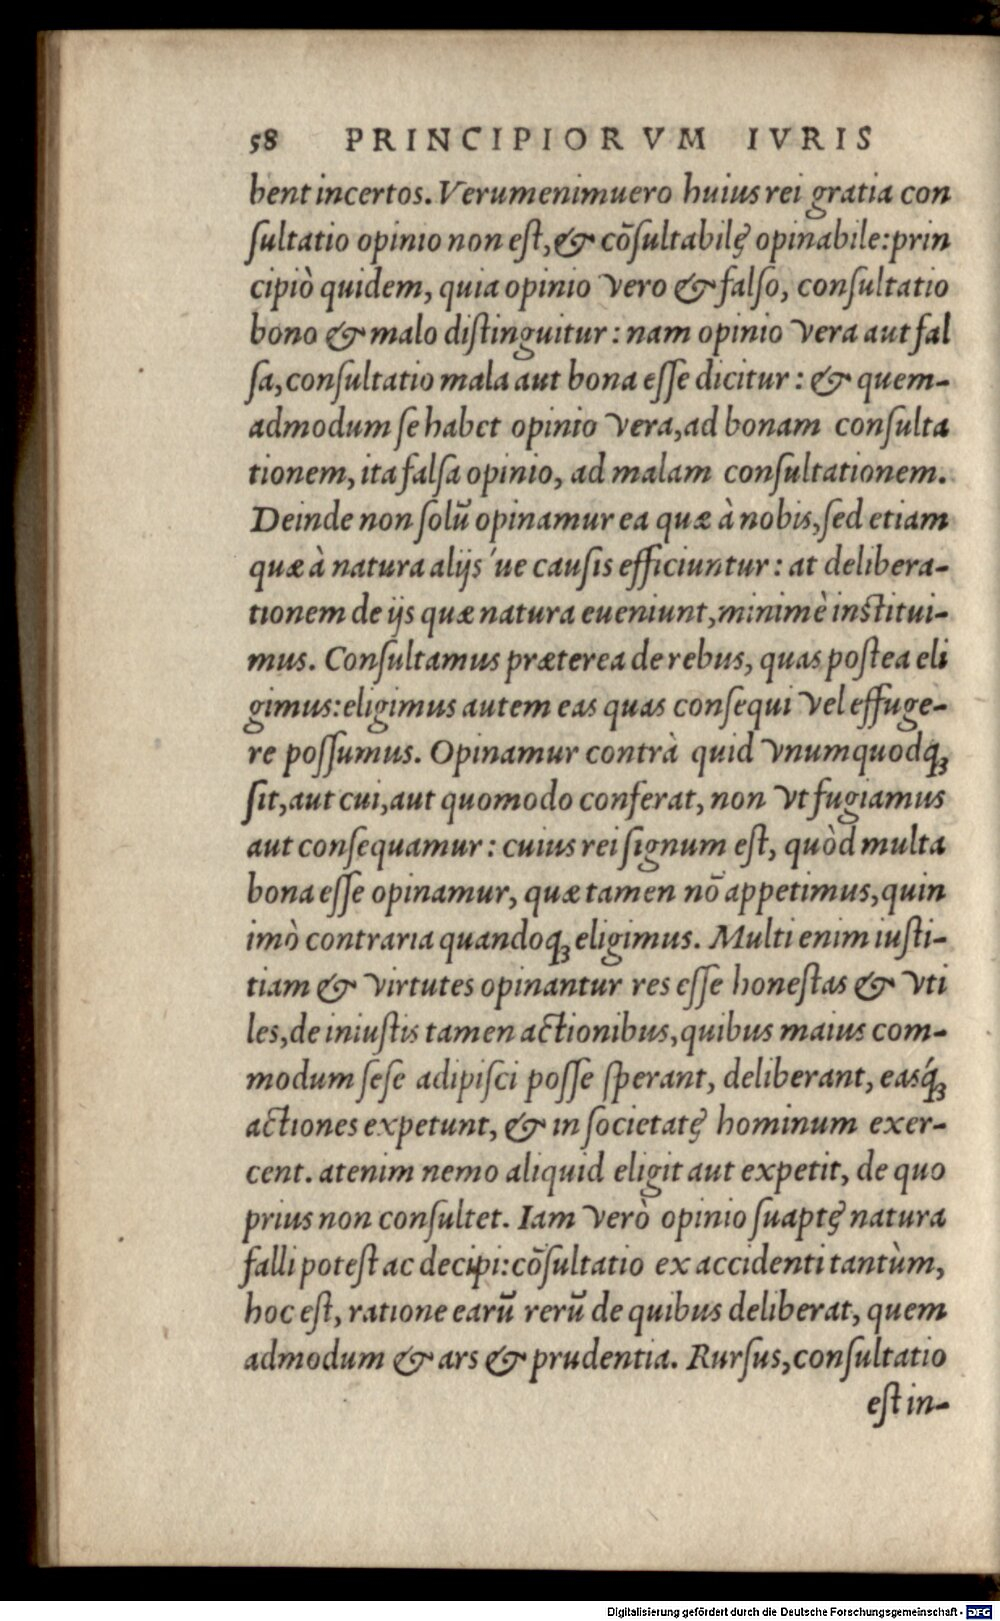 58 PRINCIPIORVM IVRIS
bent incertos. Verumenimuero huius rei gratia con
sultatio opinio non est, & cõsultabilę opinabile: prin
cipiò quidem, quia opinio vero & falso, consultatio
bono & malo distinguitur: nam opinio vera aut fal
sa, consultatio mala aut bona esse dicitur: & quem-
admodum se habet opinio vera, ad bonam consulta
tionem, ita falsa opinio, ad malam consultationem.
Deinde non solũ opinamur ea quæ à nobis, sed etiam
quæ à natura alijs´ue causis efficiuntur: at delibera-
tionem de ijs quæ natura eueniunt, minimè institui-
mus. Consultamus præterea de rebus, quas postea eli
gimus: eligimus autem eas quas consequi vel effuge-
re possumus. Opinamur contrà quid vnumquodq;
sit, aut cui, aut quomodo conferat, non vt fugiamus
aut consequamur: cuius rei signum est, quòd multa
bona esse opinamur, quæ tamen nõ appetimus, quin
imò contraria quandoq; eligimus. Multi enim iusti-
tiam & virtutes opinantur res esse honestas & vti
les, de iniustis tamen actionibus, quibus maius com-
modum sese adipisci posse sperant, deliberant, easq́;
actiones expetunt, & in societatę hominum exer-
cent. atenim nemo aliquid eligit aut expetit, de quo
prius non consultet. Iam verò opinio suaptę natura
falli potest ac decipi: cõsultatio ex accidenti tantùm,
hoc est, ratione earũ rerũ de quibus deliberat, quem
admodum & ars & prudentia. Rursus, consultatio
est in-
Digitalisierung gefördert durch die Deutsche Forschungsgemeinschaft - DFG